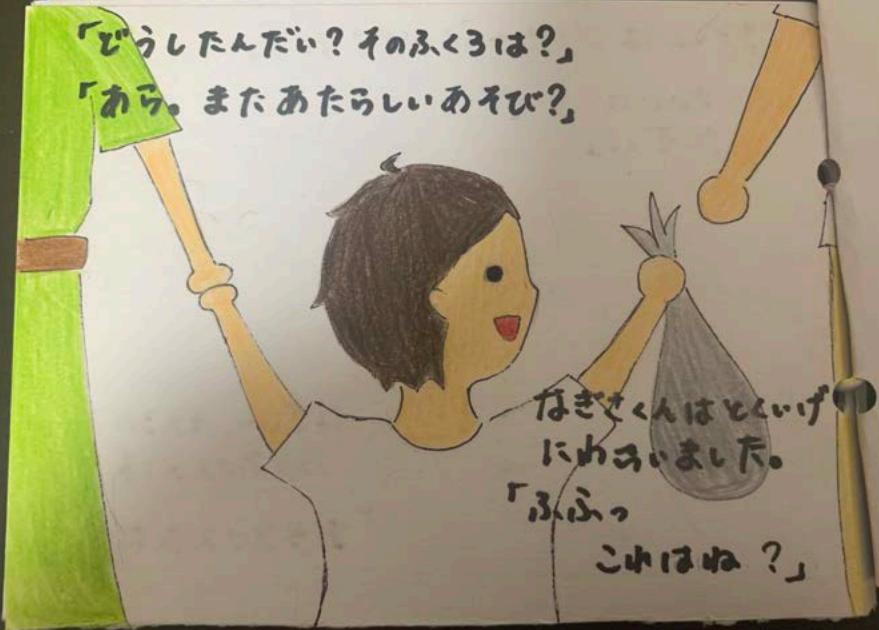 「どうしたんだい？そのふくろは？」
「あら。またあたらしいあそび？」
なぎさくんはとくいげ
にわらいました。
「ふふっ
これはね？」